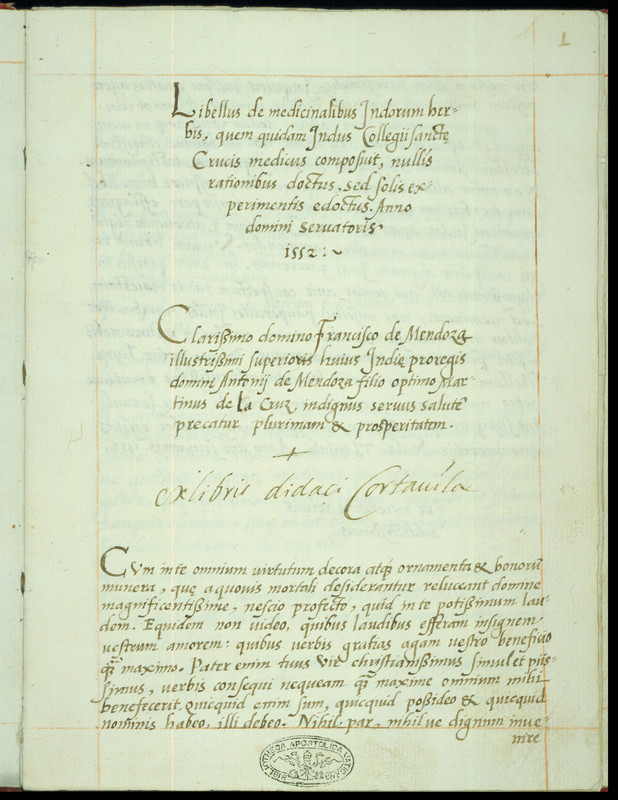 1
Libellus de medicinalibus Indorum her-
bis, quem quidam Indus Collegii sanctę
Crucis medicus composuit, nullis
rationibus doctus, sed solis ex-
perimentis edoctus. Anno
domini seruatoris
1552:~
Clarißimo domino Francisco de Mendoza
illustrißimi superioris huius Indię proregis
domini Antonij de Mendoza filio optimo Mar-
tinus de la Cruz, indignus seruus salutē
precatur plurimam & prosperitatem.
+
ex libris didaci Cortauila
Cum in te omnium virtutum decora atq; ornamenta & bonorū
munera, quę a quouis mortali desiderantur reluceant domine
magnificentißime, nescio profecto, quid in te potißimum lau-
dem. Equidem non video, quibus laudibus efferam insignem
vestrum amorem: quibus verbis gratias agam vestro beneficio
q̄ maximo. Pater enim tuus vir christianißimus simul et piis-
simus, verbis consequi nequeam q̄ maxime omnium mihi
benefecerit. quicquid enim sum, quicquid poßideo & quicquid
nominis habeo, illi debeo. Nihil par, nihilue dignum inue-
nire
BIBLIOTHECA APOSTOLICA VATICANA